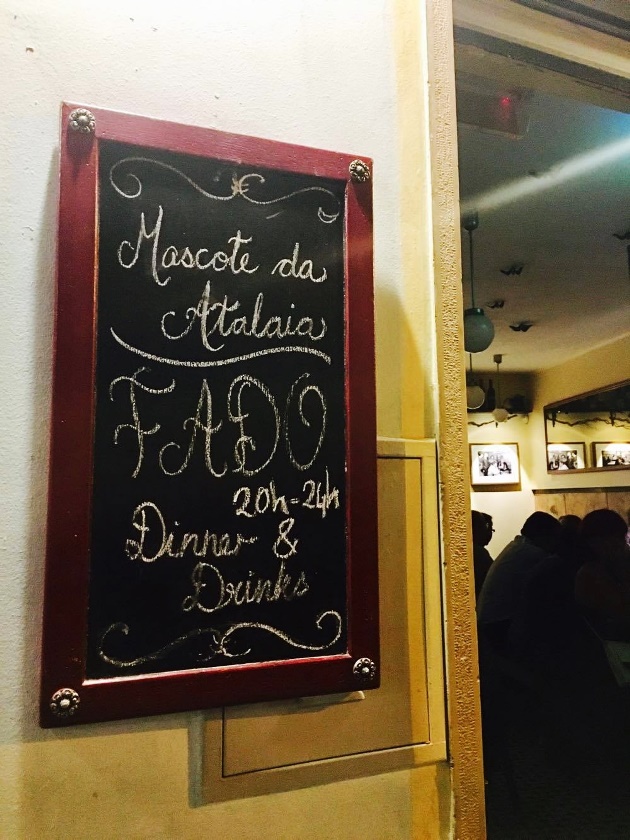 Mascote da
Atalaia
FADO
20h-24h
Dinner &
Drinks